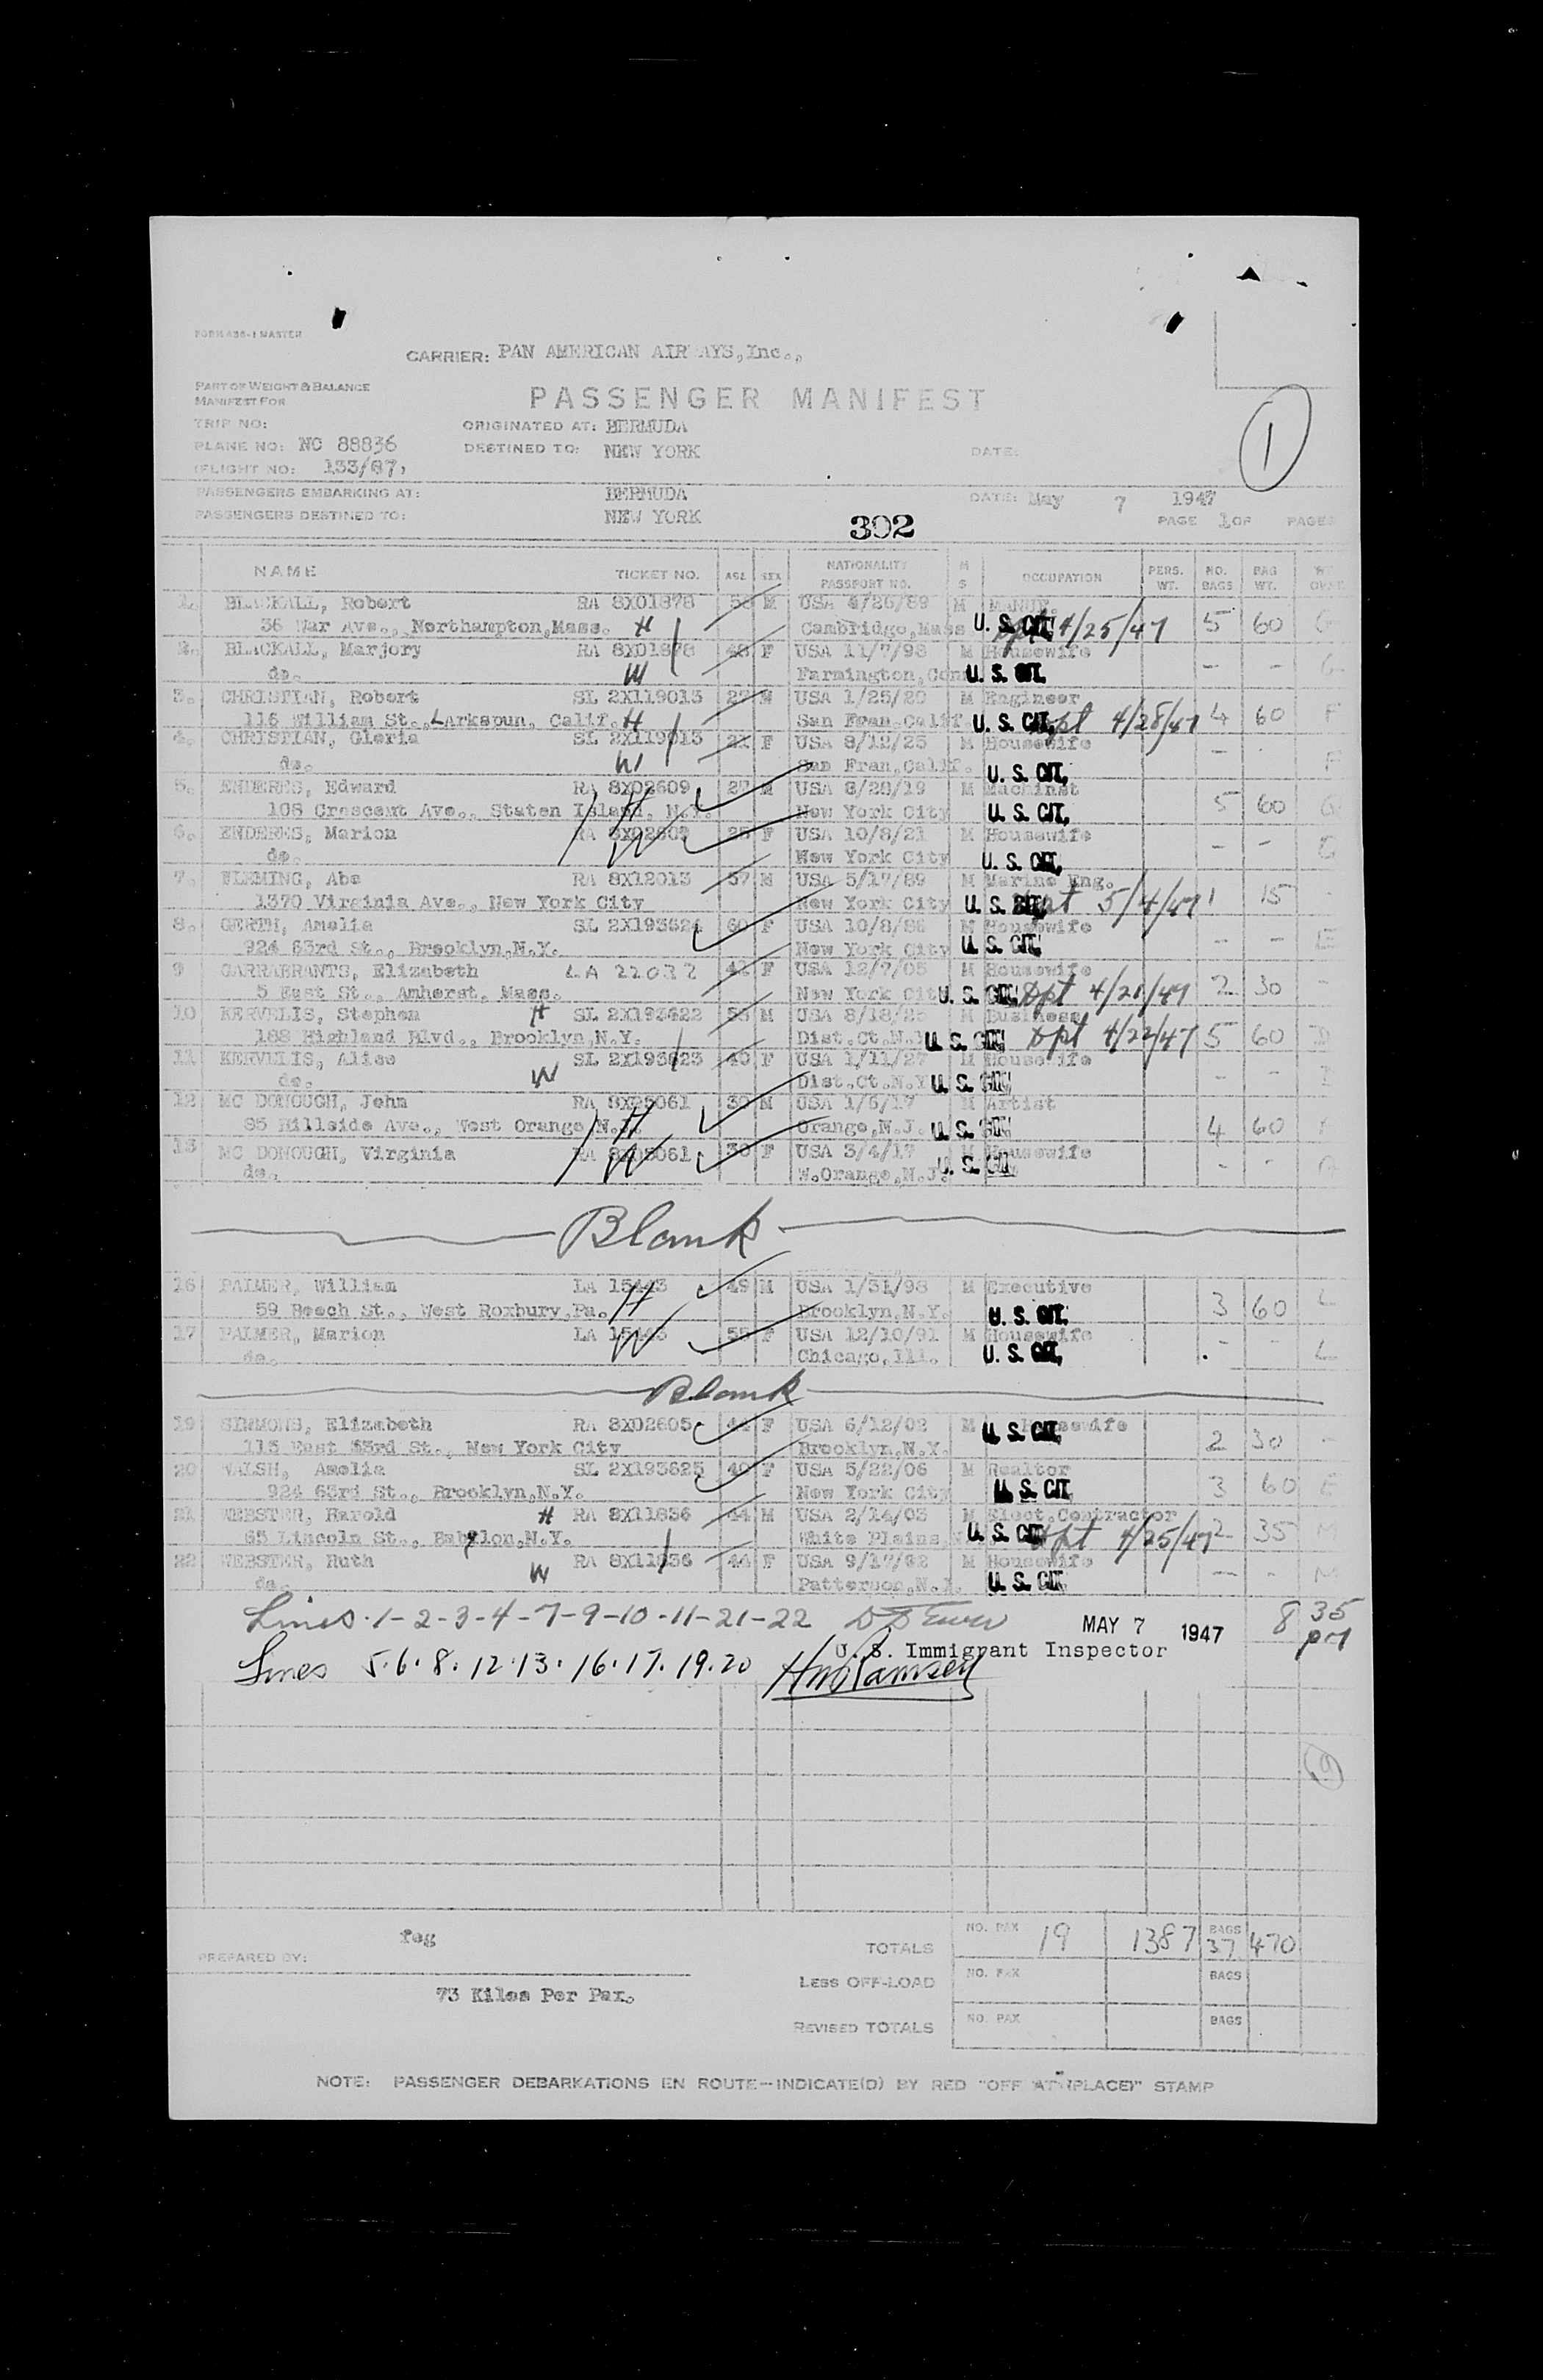 FORM 435-1 MASTER
CARRIER: PAN AMERICAN AIR AYS, Inc.,
PART OF WEIGHT & BALANCE
MANIFEST FOR
PASSENGER MANIFEST
TRIP NO: ORIGINATED AT: BERMUDA
PLANE NO: NC 88836 DESTINED TO: NEW YORK DATE:
FLIGHT NO: 133/07, 1
PASSENGERS EMBARKING AT: BERMUDA DATE: May 7 1947
PASSENGERS DESTINED TO: NEW YORK 302 PAGE 1 OF PAGES
NAME TICKET NO. AGE SEX NATIONALITY PASSPORT NO. M S OCCUPATION PERS. WT. NO. BAGS BAG WT.
1. BLACKALL, Robert RA 8X01878 58 M USA 4/26/89 M MANUF.
36 War Ave., Northampton, Mass. H Cambridge, Mass U. S. CIT. Dpt 4/25/47 5 60 G
2. BLACKALL, Marjory RA 8X01878 48 F USA 11/7/98 M Housewife
do. W Farmington, Conn U. S. CIT. - - G
3. CHRISTIAN, Robert SL 2X119013 27 M USA 1/25/20 M Engineer
116 William St., Larkspun, Calif. H San Fran, Calif. U. S. CIT. Dpt 4/28/47 4 60 F
4. CHRISTIAN, Gloria SL 2X119013 21 F USA 8/12/25 M Housewife
do. W San Fran, Calif. U. S. CIT. - - F
5. ENDERES, Edward RA 8X02609 27 M USA 8/28/19 M Machinst
108 Crescent Ave., Staten Island, N.Y. H New York City U. S. CIT. 5 60 G
6. ENDERES, Marion RA 8X02609 25 F USA 10/8/21 M Housewife
do. W New York City U. S. CIT. - - G
7. FLEMING, Abe RA 8X12013 57 M USA 5/17/89 M Marine Eng.
1370 Virginia Ave., New York City New York City U. S. CIT. Dpt 5/4/47 1 15 -
8. GERTH, Amelia SL 2X193624 60 F USA 10/8/86 M Housewife
924 63rd St., Brooklyn, N.Y. New York City U. S. CIT. - - E
9 GARRABRANTS, Elizabeth LA 22032 41 F USA 12/7/05 M Housewife
5 East St., Amherst, Mass. New York City U. S. CIT. Dpt 4/21/47 2 30 -
10 KERVELIS, Stephen H SL 2X193622 53 M USA 8/18/25 M Business
188 Highland Blvd., Brooklyn, N.Y. Dist. Ct. N.Y U. S. CIT. Dpt 4/22/47 5 60 D
11 KERVELIS, Alice SL 2X193623 49 F USA 1/11/27 M Housewife
do. W Dist. Ct. N.Y U. S. CIT. - - D
12 MC DONOUGH, John RA 8X05061 30 M USA 1/6/17 M Artist
85 Hillside Ave., West Orange, N.J. H Orange, N.J. U. S. CIT. 4 60
13 MC DONOUGH, Virginia RA 8X05061 30 F USA 3/4/17 M Housewife
do. W W. Orange, N.J. U. S. CIT. - -
Blank
16 PALMER, William LA 15443 49 M USA 1/31/98 M Executive
59 Beech St., West Roxbury, Pa. H Brooklyn, N.Y. U. S. CIT. 3 60 L
17 PALMER, Marion LA 15443 55 F USA 12/10/91 M Housewife
do. W Chicago, Ill. U. S. CIT. - - L
Blank
19 SIMMONS, Elizabeth RA 8X02605 44 F USA 6/12/02 M Housewife U. S. CIT.
115 East 53rd St., New York City Brooklyn, N.Y. 2 30 -
20 WALSH, Amelia SL 2X193625 40 F USA 5/22/06 M Realtor
924 63rd St., Brooklyn, N.Y. New York City U. S. CIT. 3 60 E
21 WEBSTER, Harold H RA 8X11836 44 M USA 2/14/03 M Elect. Contractor
65 Lincoln St., Babylon, N.Y. White Plains, N U. S. CIT. Dpt 4/25/47 2 35 M
22 WEBSTER, Ruth RA 8X11836 44 F USA 9/17/02 M Housewife
do. W Patterson, N.J. U. S. CIT. - - M
Lines 1-2-3-4-7-9-10-11-21-22 MAY 7 1947 8 35 pm
U. S. Immigrant Inspector
Lines 5.6.8.12.13.16.17.19.20 HW Ramsey
PREPARED BY: feg
TOTALS NO. PAX 19 1387 BAGS 37 470
73 Kilos Per Pax.
LESS OFF-LOAD NO. PAX BAGS
REVISED TOTALS NO. PAX BAGS
NOTE: PASSENGER DEBARKATIONS EN ROUTE-INDICATE(D) BY RED "OFF AT (PLACE)" STAMP